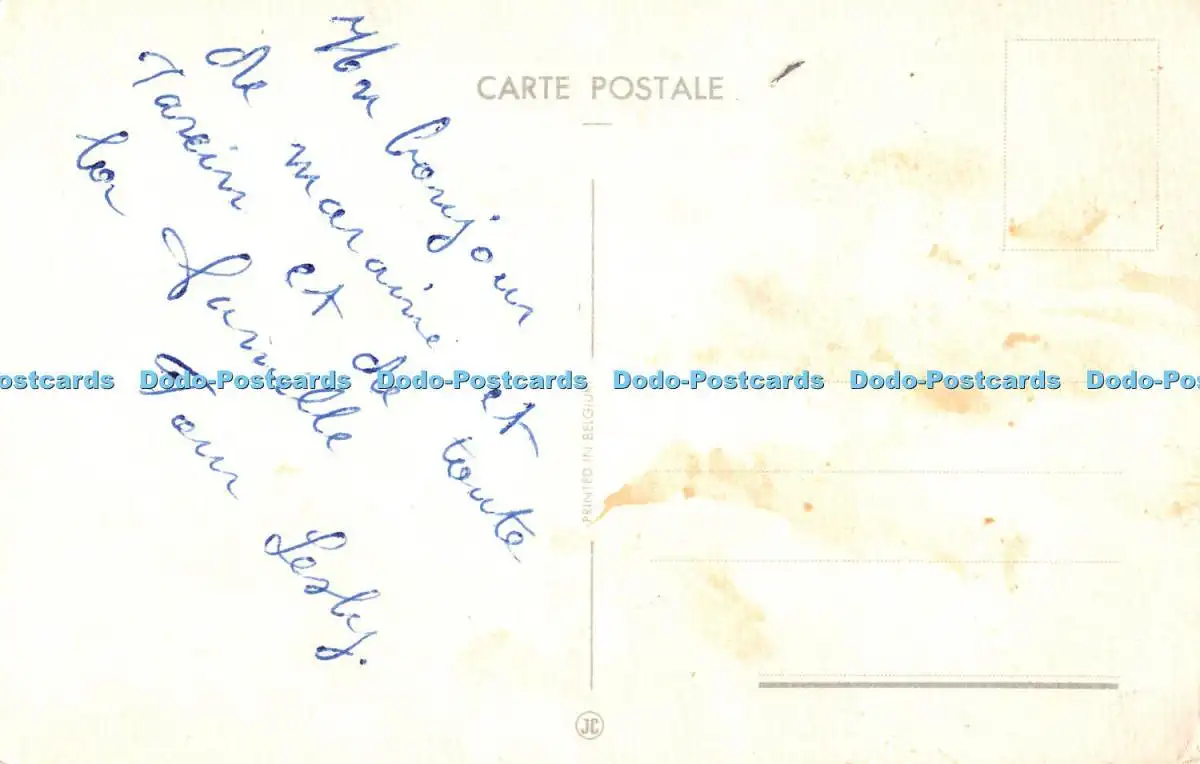 CARTE POSTALE
Un bonjour
de marraine et
et de toute
la famille
Lesby.
PRINTED IN BELGIUM
JC
ostcards Dodo-Postcards Dodo-Postcards Dodo-Postcards Dodo-Postcards Dodo-Po